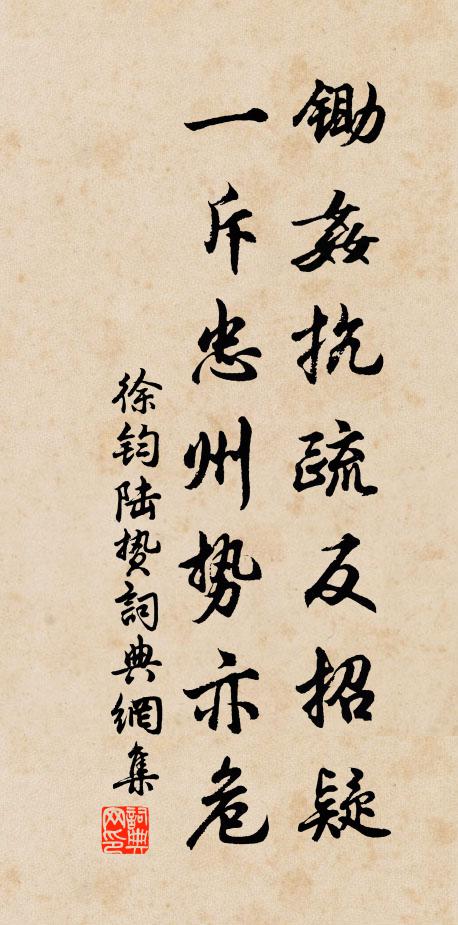 锄姦抗疏反招疑
一斥忠州势亦危
徐钧陆贽詞典網集
詞典网印